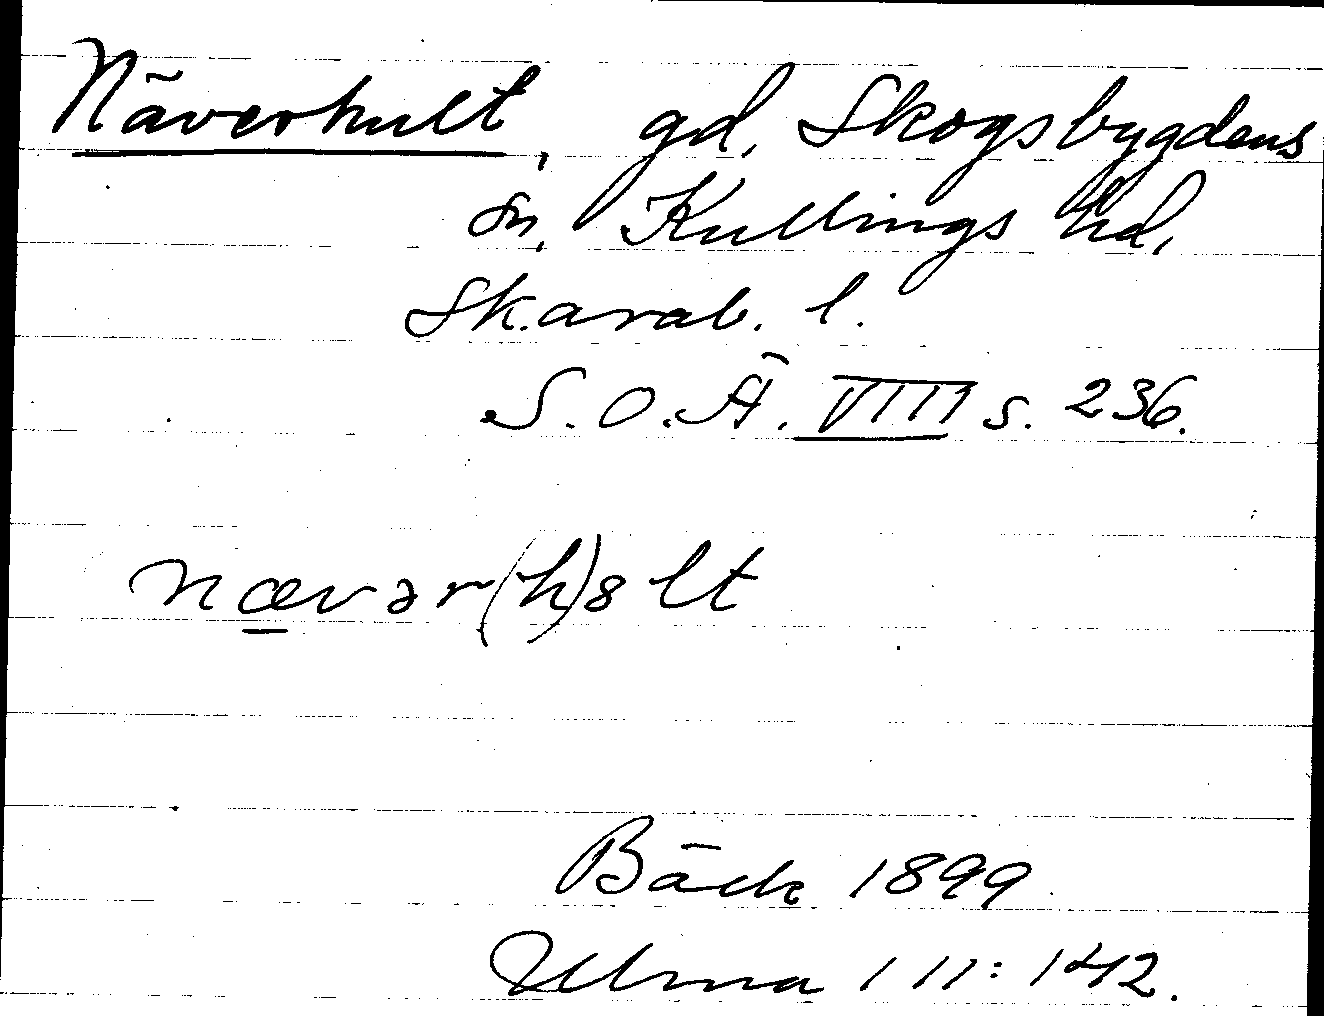 Näverhult, gd, Skogsbygdens
sn, Kullings hd,
Skarab. l.
S.O.Ä. VIII s. 236.
nævər(h)8lt
Bäck 1899
Ulma 111:142.